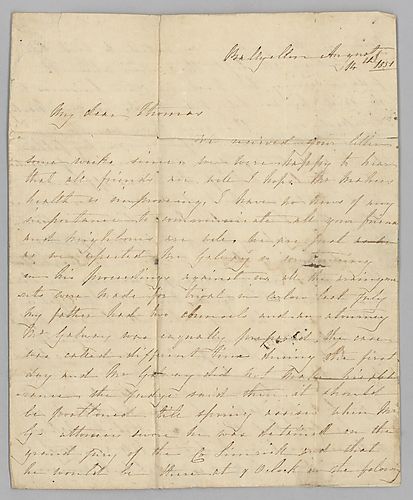 August
1851
My Dear Thomas
We received your letter
some weeks since we were happy to hear
that all friends are well I hope the Mahers
health is improving. I have no news of any
importance to communicate all your friends
and neighbours are well. We are just
as we expected Mr Galway is
in his proceedings against us all the arrangem
ents were made for trial in last July
my father had two councils and an attorney
Mr Galway was equally prepared. The case
was called different times during the first
day and Mr did not make
the judge said then it should
be postponed till spring assises when Mr
Gs attorney swore he was detained on the
grand jury of the Co Limerick and that
he would be there at 9 Oclock on the following